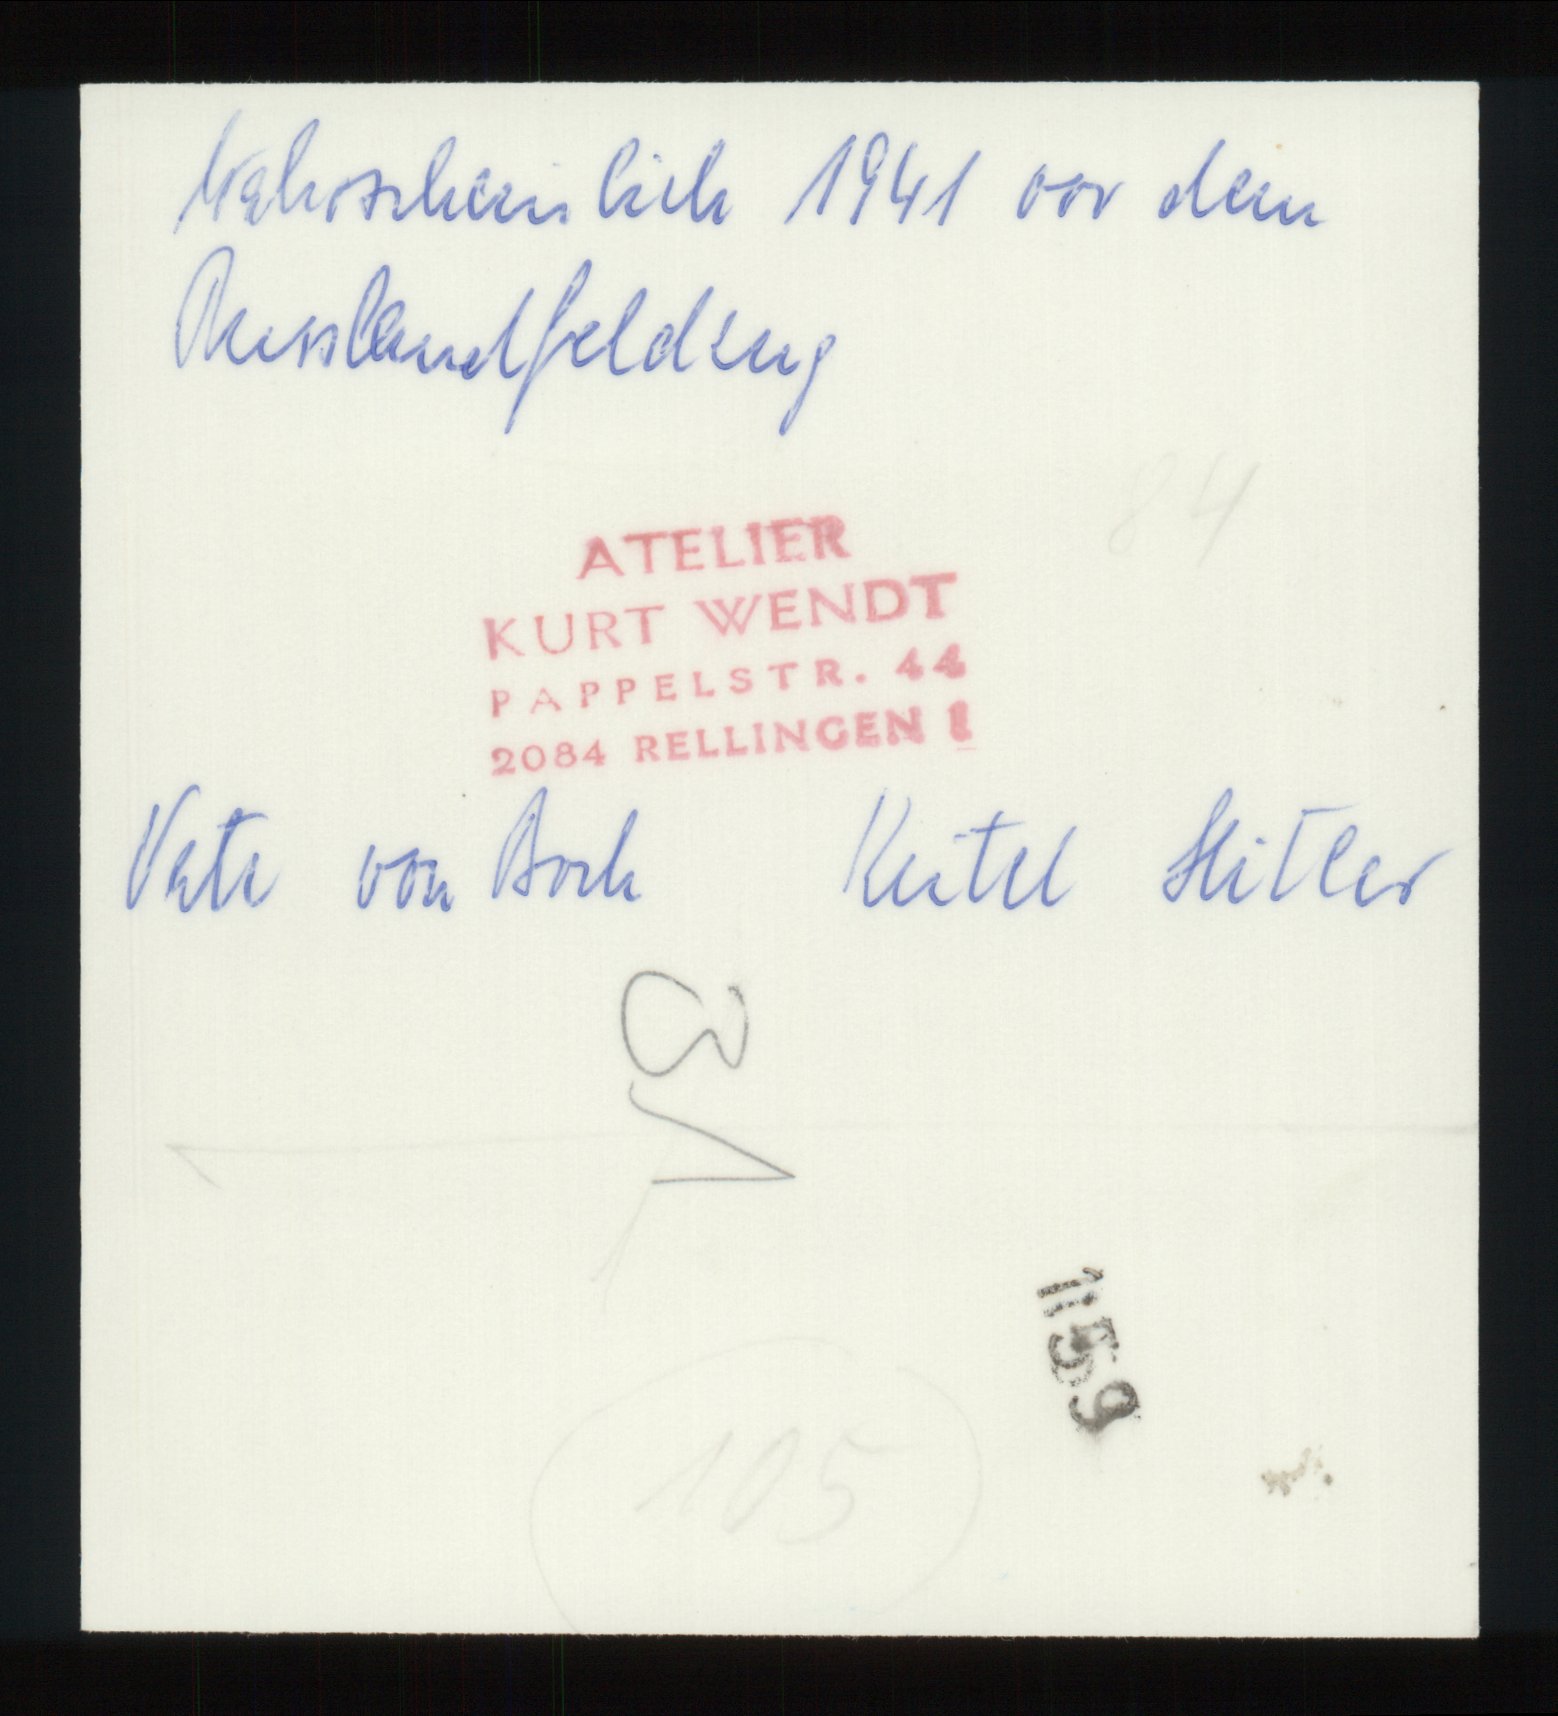 Wahrscheinlich 1941 vor dem
Russlandfeldzug
84
ATELIER
KURT WENDT
PAPPELSTR. 44
2084 RELLINGEN 1
von Bock Keitel Hitler
31
11559
105